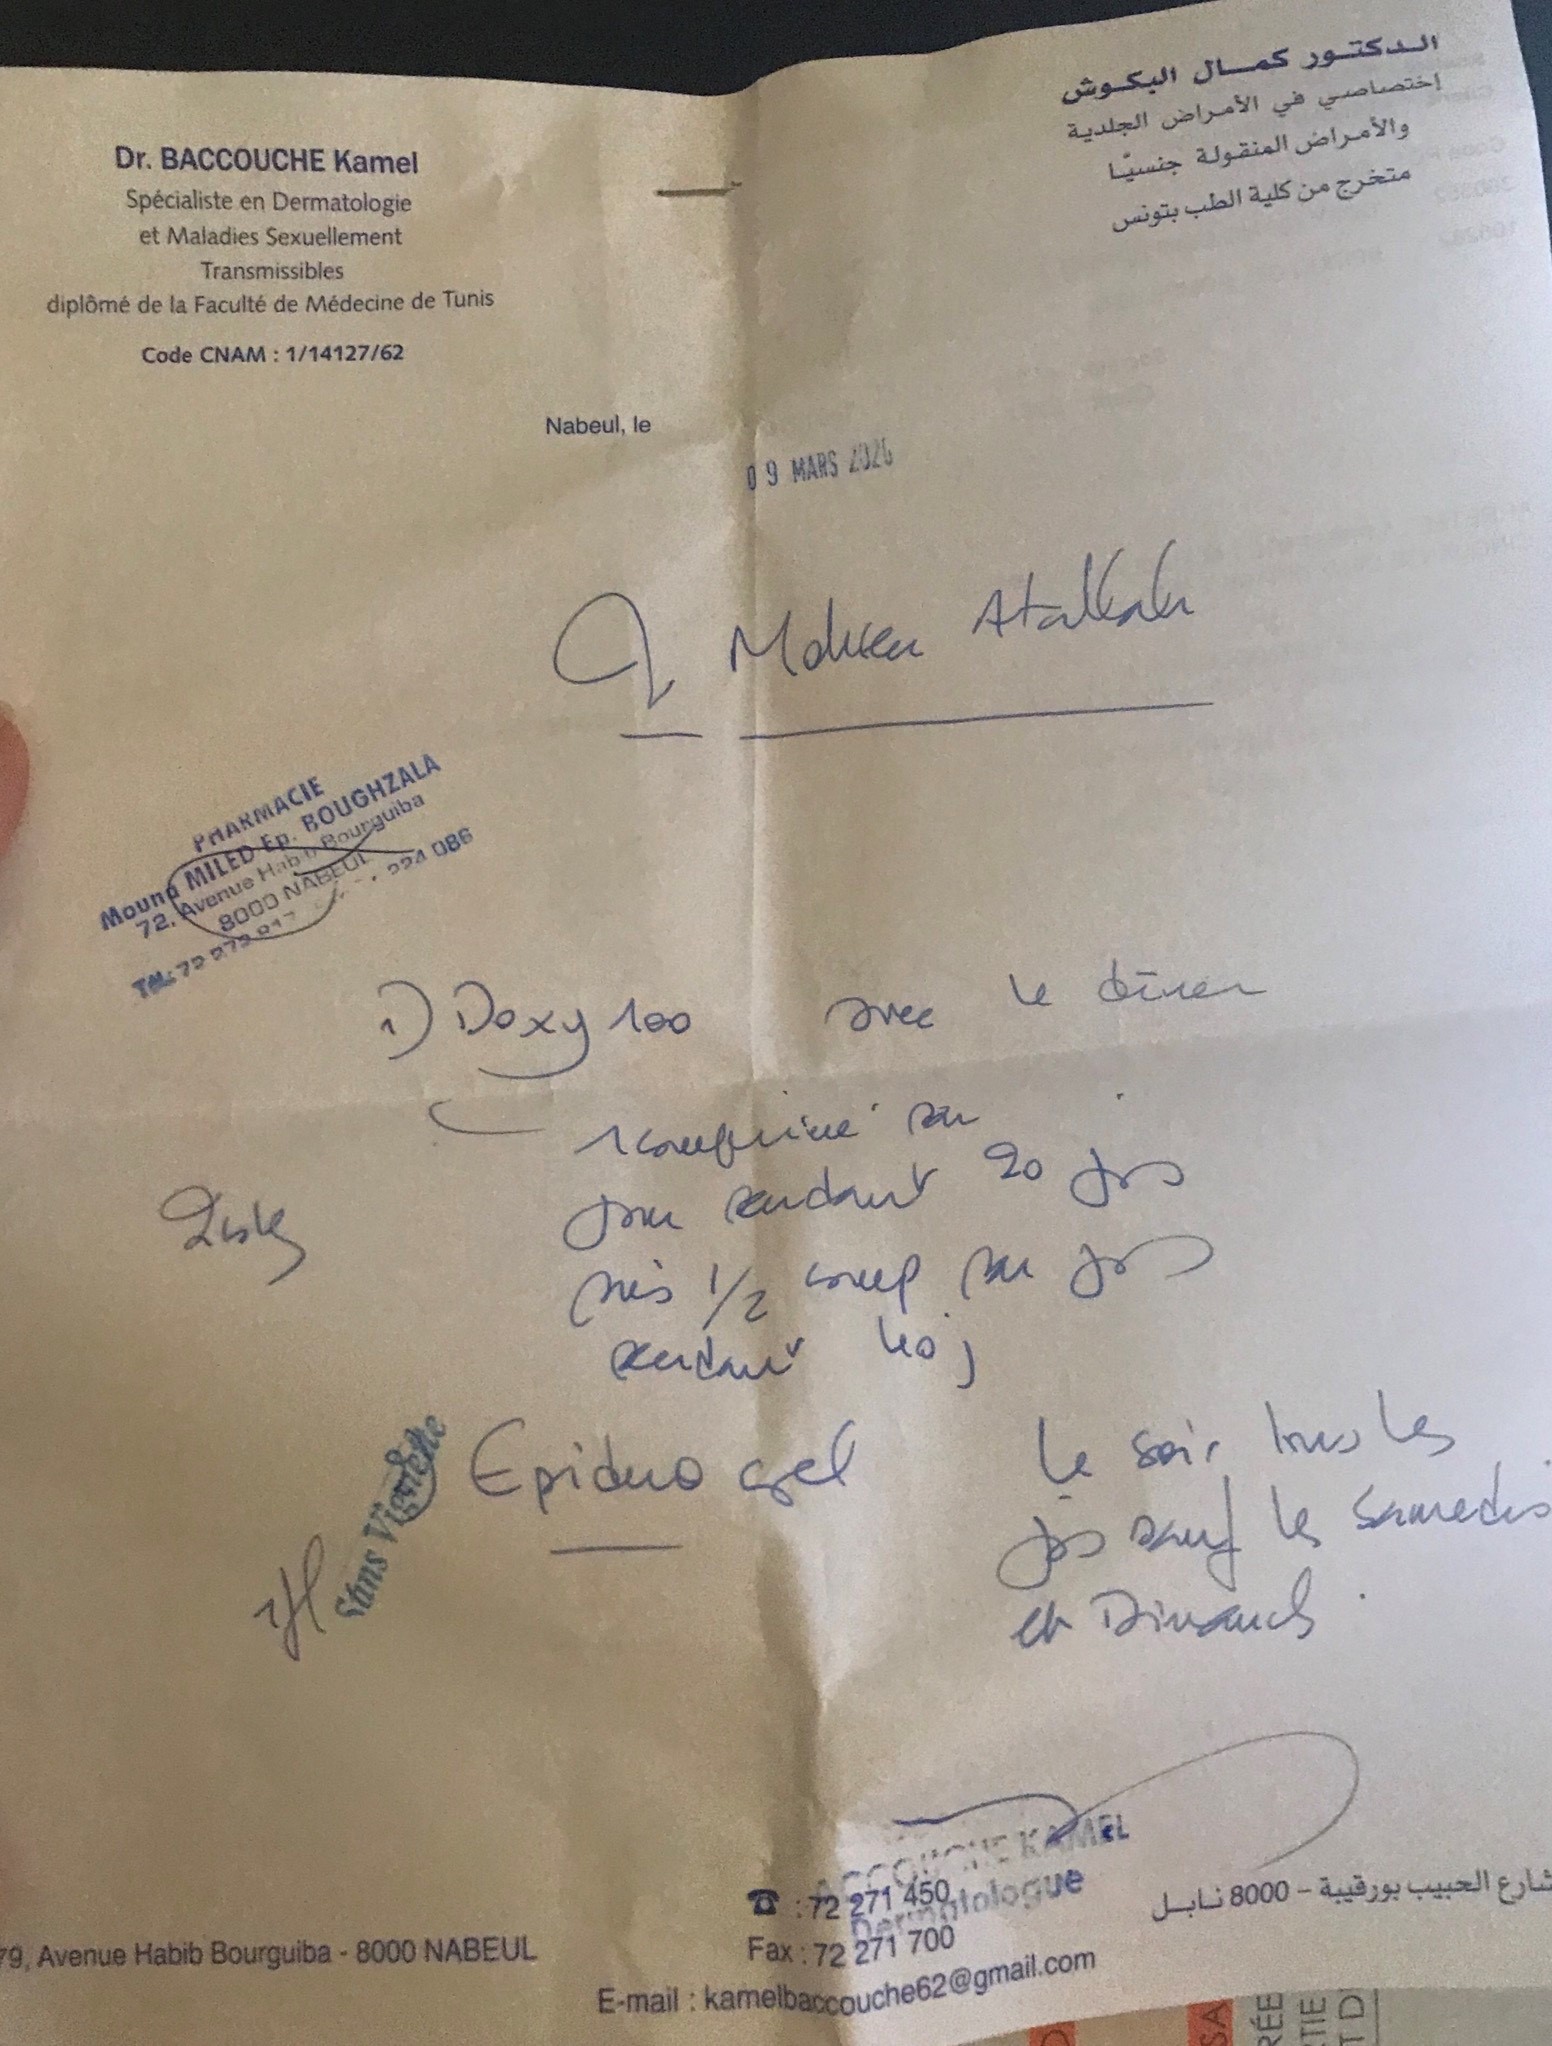 Dr. BACCOUCHE Kamel
Spécialiste en Dermatologie
et Maladies Sexuellement
Transmissibles
diplômé de la Faculté de Médecine de Tunis
Code CNAM : 1/14127/62
الدكتور كمال البكوش
إختصاصي في الأمراض الجلدية
والأمراض المنقولة جنسيّا
متخرج من كلية الطب بتونس
Nabeul, le
09 MARS 2026
Mohsen Atallah
PHARMACIE
Mouna MILED Ep. BOUGHZALA
72, Avenue Habib Bourguiba
8000 NABEUL
Tél: 72 272 224 086
1) Doxy 100 avec le dîner
1 comprimé par
jour pendant 20 jrs
puis 1/2 comp par jrs
pendant 40 j
Epiduo gel
le soir tous les
jrs sauf les samedis
et Dimanch
Sans Vignette
BACCOUCHE KAMEL
Dermatologue
79, Avenue Habib Bourguiba - 8000 NABEUL
☎ : 72 271 450
Fax : 72 271 700
E-mail : kamelbaccouche62@gmail.com
شارع الحبيب بورقيبة - 8000 نابل
SA
RÉE
TIE
T D